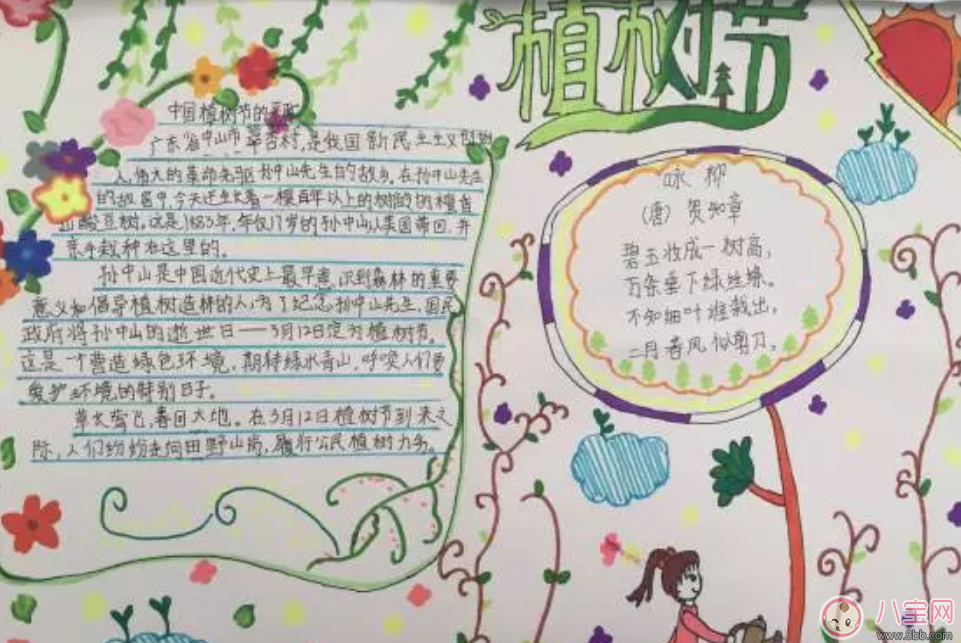 植树节
中国植树节的来
广东省中山市翠杏村,是我国新民主主义
人,伟大的革命先驱孙中山先生的故乡。在孙中山先生
的故居中,今天还生长着一棵百年以上的树龄的檀香
山酸豆树。这是1883年,年仅17岁的孙中山从美国带回,并
亲手栽种在这里的。
孙中山是中国近代史上最早意识到森林的重要
意义和倡导植树造林的人,为了纪念孙中山先生,国民
政府将孙中山的逝世日——3月12日定为植树节。
这是一个营造绿色环境,期待绿水青山,呼唤人们更
爱护环境的特别日子。
草长莺飞,春回大地。在3月12日植树节到来之
际,人们纷纷走向田野山岗,履行公民植树力务。
咏柳
(唐)贺知章
碧玉收成一树高,
万条垂下绿丝绦。
不知细叶谁裁出,
二月春风似剪刀。
八宝网
www.8bb.com